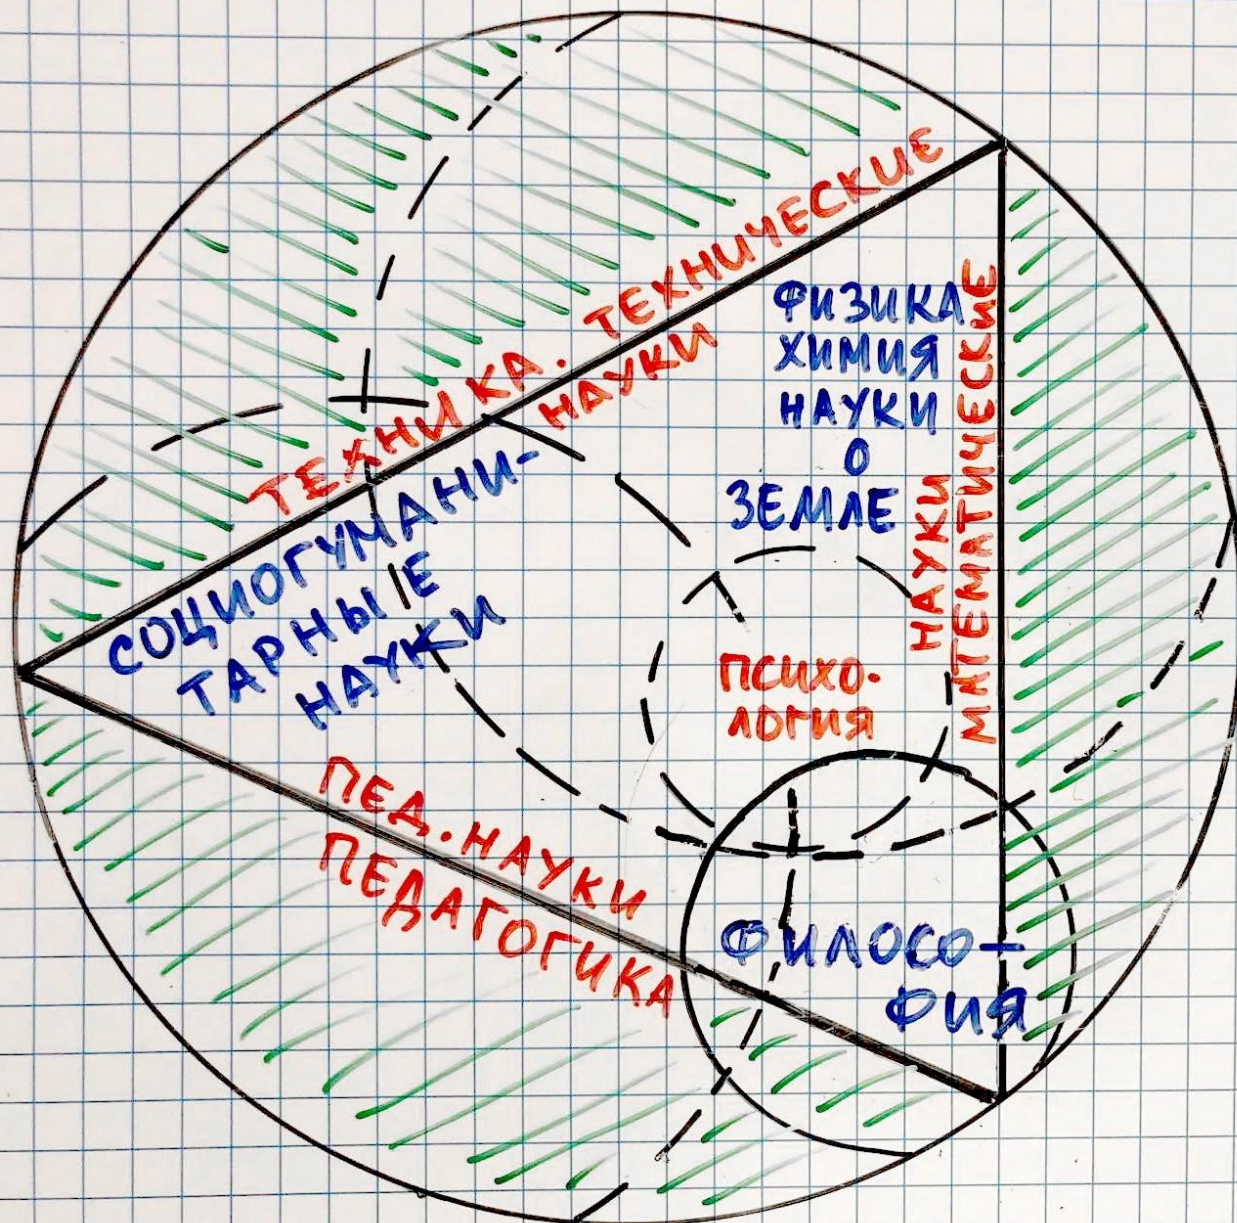 ТЕХНИКА. ТЕХНИЧЕСКИЕ
НАУКИ
ФИЗИКА
ХИМИЯ
НАУКИ
О
ЗЕМЛЕ
НАУКИ
МАТЕМАТИЧЕСКИЕ
СОЦИОГУМАНИ-
ТАРНЫЕ
НАУКИ
ПСИХО-
ЛОГИЯ
ПЕД. НАУКИ
ПЕДАГОГИКА
ФИЛОСО-
ФИЯ